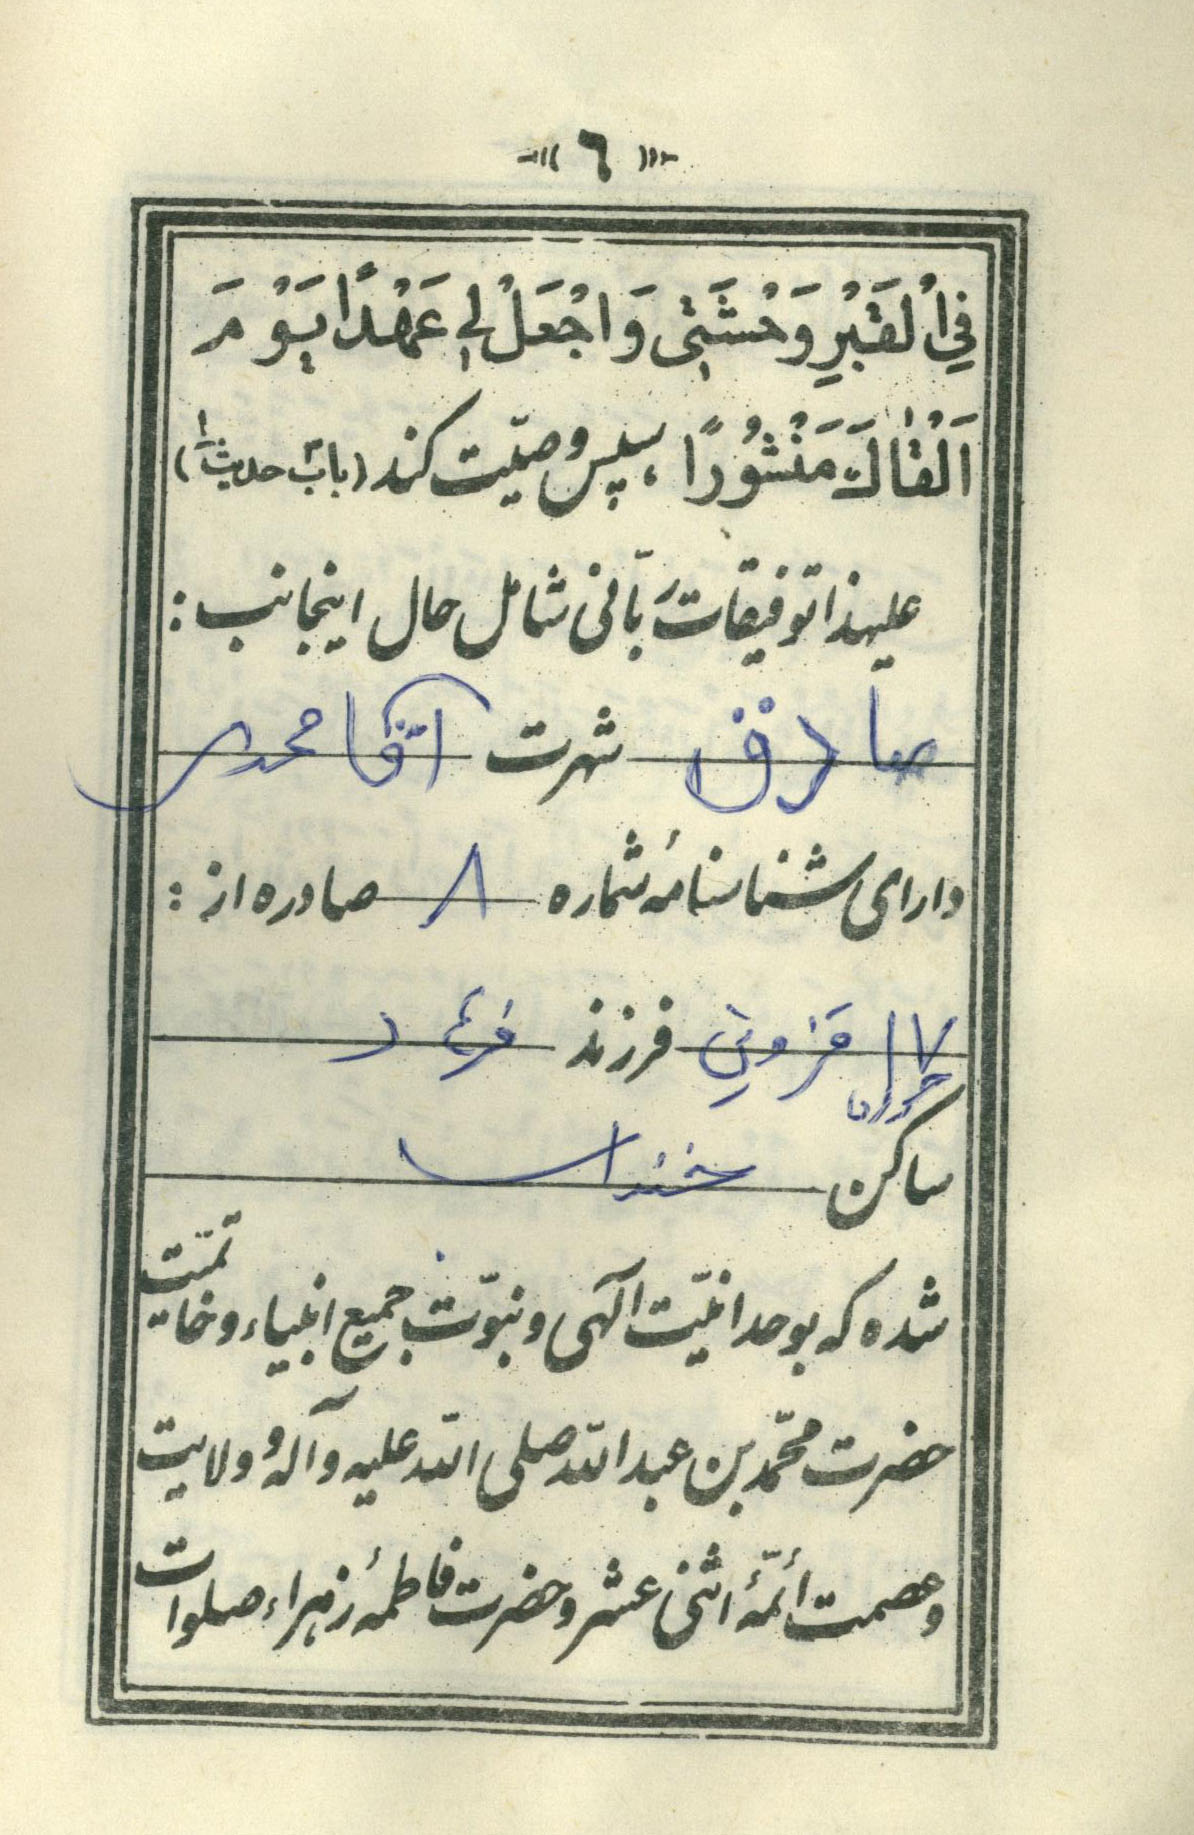 ٦
فِي الْقَبْرِ وَحْشَتِى وَاجْعَلْ لِى عَهْدًا يَوْمَ
اَلْقٰاكَ مَنْشُورًا ، سپس وصیّت کند (باب ۳ حدیث ۱)
علیهذا توفیقات ربّانی شامل حال اینجانب :
صادق شهرت آقا محمدی
دارای شناسنامهٔ شماره ۸ صادره از :
۱۷ حوزه قزوین فرزند فرهاد
ساکن
شده که بوحدانیّت الٓهی و نبوّت جمیع انبیاء و خاتمیّت
حضرت محمّد بن عبدالله صلی الله علیه وآله و ولایت
و عصمت أئمّهٔ اثنی عشر و حضرت فاطمهٔ زهراء صلوات